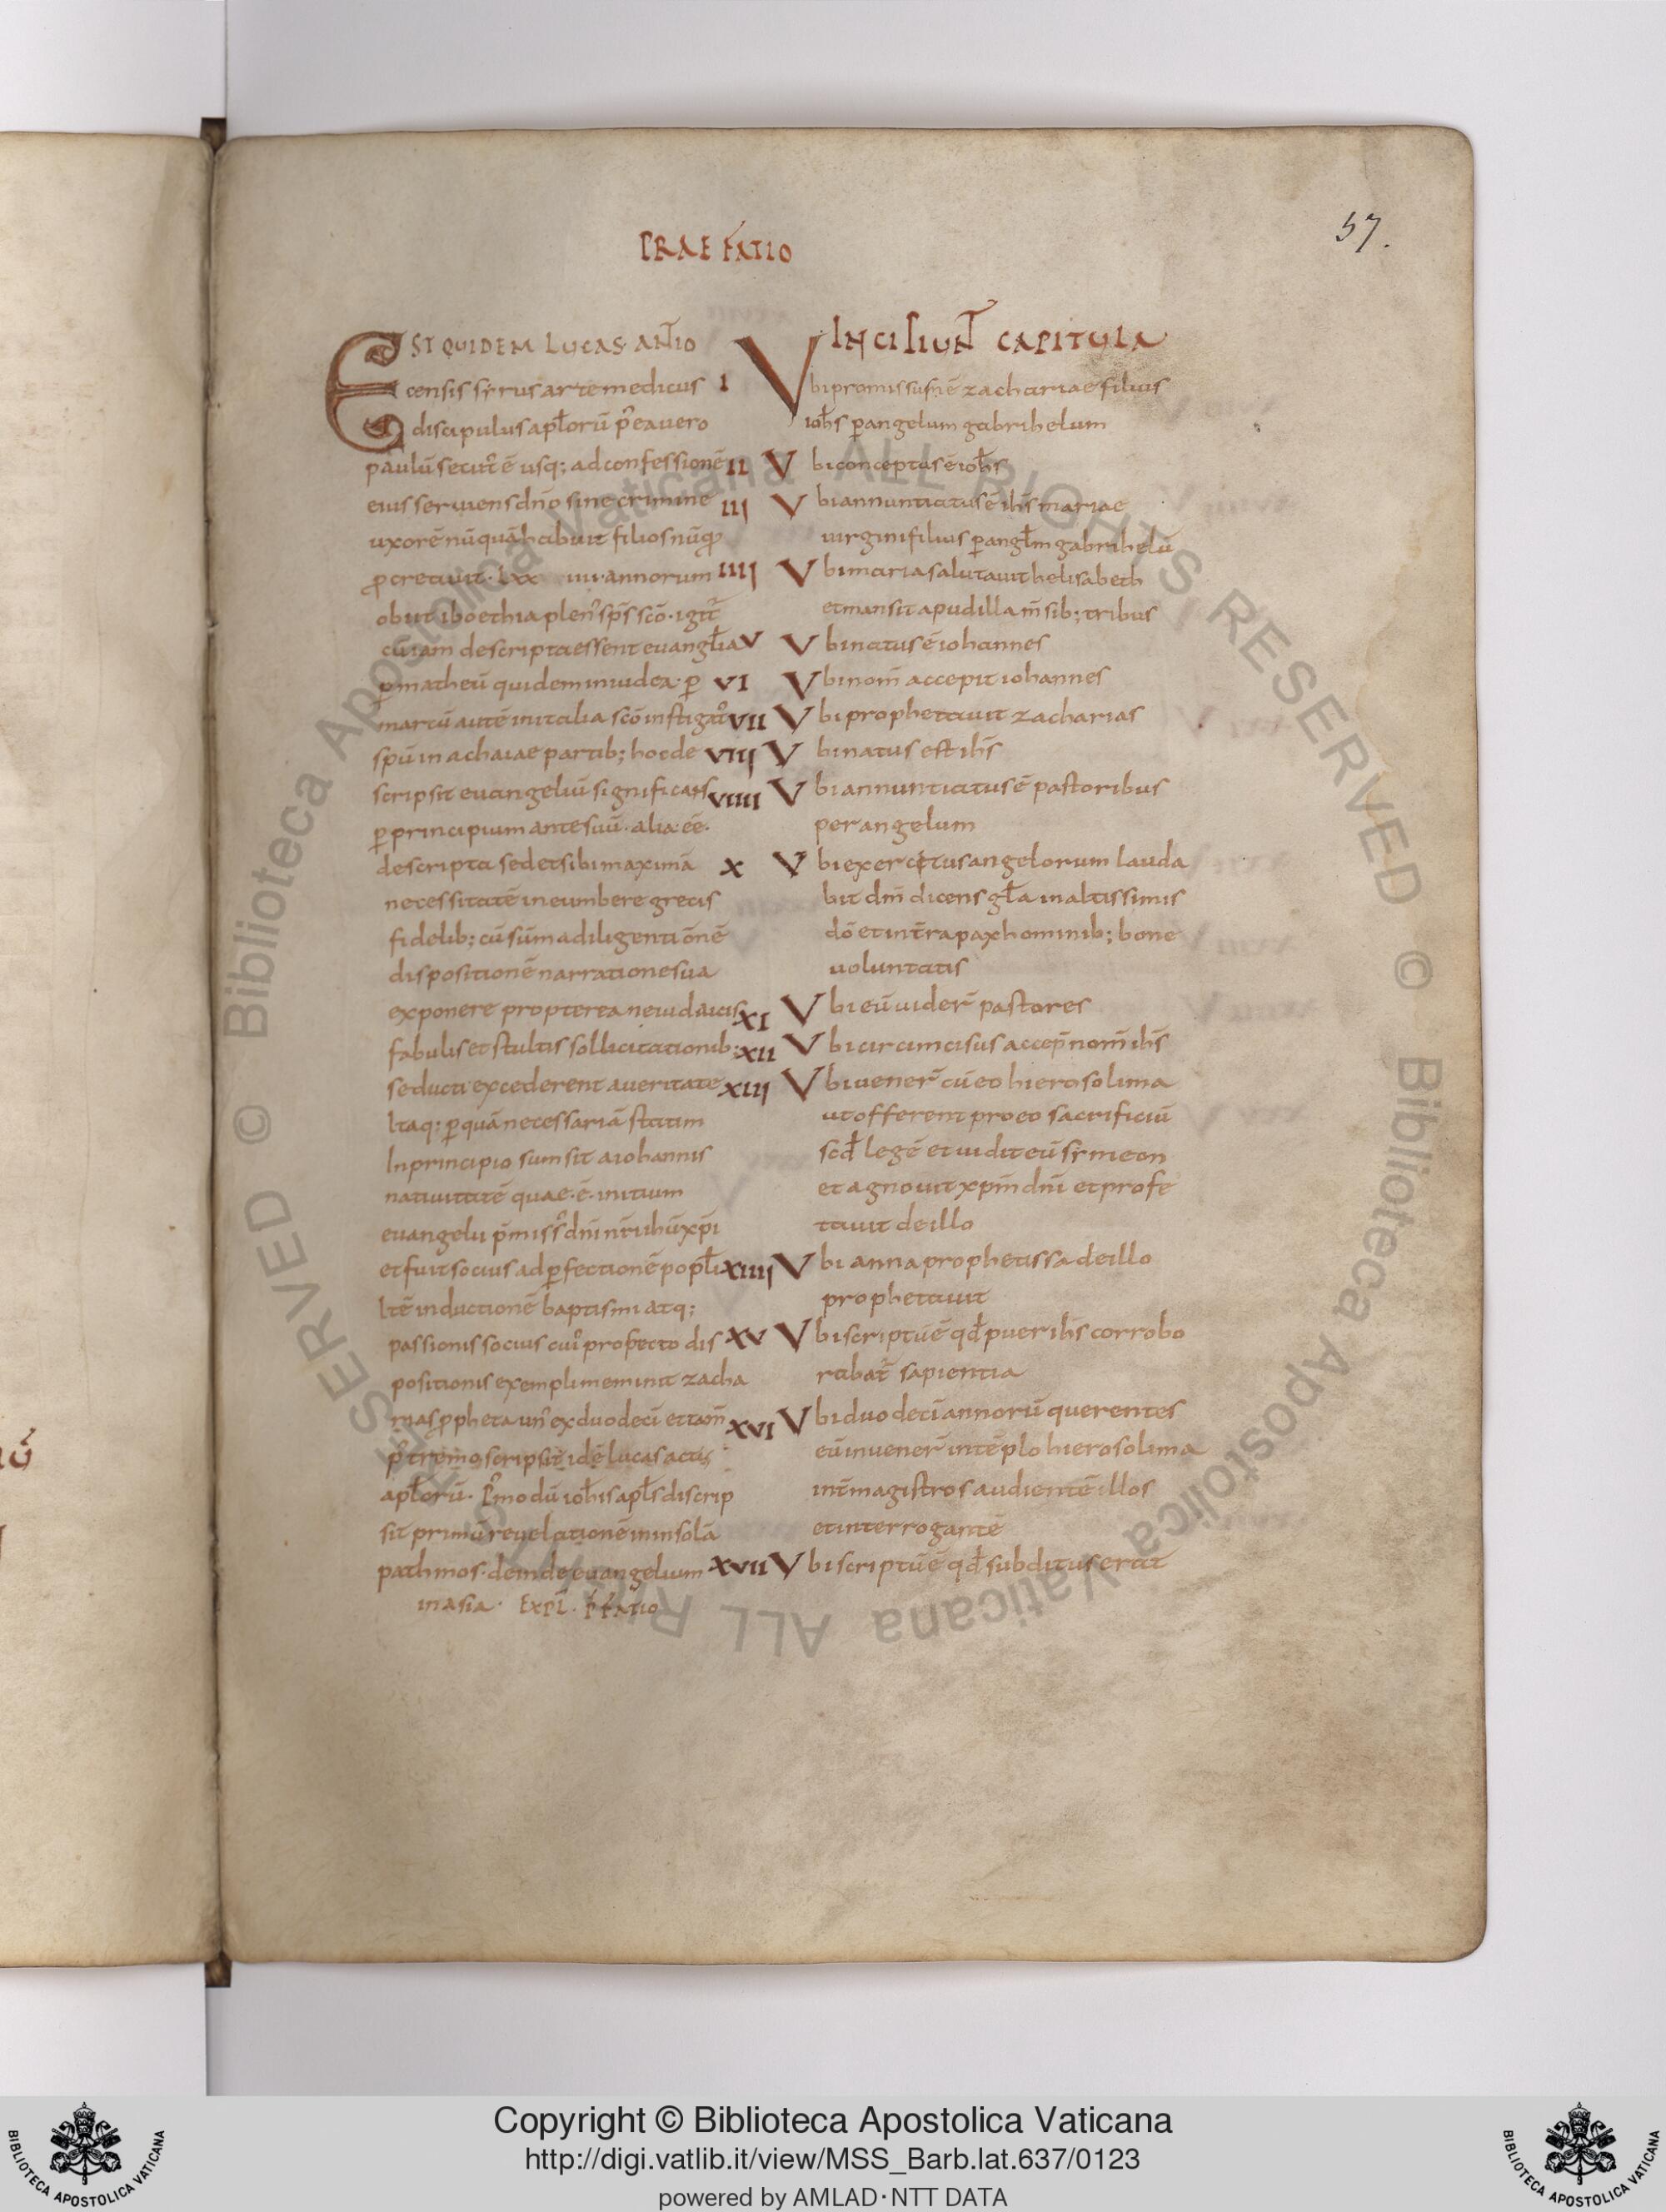 57.
PRAEFATIO
EST QUIDEM LUCAS· ANT̄IO
censis syrus arte medicus
discipulus apłorū p᾽ea uero
paulū secut᾽ ē usq; ad confessionē
eius seruiens dn̄o sine crimine
uxorē nūquā habuit filios nūq̄
ꝓcreauit· Lxx iiii· annorum
obiit iboethia plen᾽ sp̄s scō· igit᾽
cū iam descripta essent euangl̄ia
ꝑ matheū quidem in iudea· ꝑ
marcū autē in italia scō instigāt᾽
sp̄ū in achaiae partib; hoc de
scripsit euangeliū significans
ꝑ principium ante suū· alia· eē·
descripta sed et sibi maximā
necessitatē incumbere grecis
fidelib; cū sūma diligenti ōnē
dispositionē narratione sua
exponere propterea ne iudaicis
fabulis et stultis sollicitationib;
seducti excederent a ueritate
Itaq: ꝑ quā necessariā statim
In principio sumsit a iohannis
natiuitatē quae· ē· initium
euangelii p̄miss᾽ dn̄i nr̄i ihū xp̄i
et fuit socius ad ꝑfectionē popl̄i
Itē inductionē baptismi atq;
passionis socius cui᾽ profecto dis
positionis exempli meminit zacha
rias ꝓpheta un᾽ ex duodecī et tam̄
p᾽tremo scripsit idē lucas actus
apłorū· P᾽modū ioħis apls̄ discrip
sit primū reuelationē in insolā
pathmos· deinde euangelium
in asia· EXPL̄· P̄FATIO
INCIPIUNT̄ CAPITULA
I Vbi promissus ē zachariae filius
ioħs ꝑ angelum gabrihelum
II Vbi conceptus ē ioħs
III Vbi annuntiatus ē ihs̄ mariae
uirgini filius ꝑ angl̄m gabrihelū
IIII Vbi maria salutauit helisabeth
et mansit apud illa m̄sib; tribus
V Vbi natus ē iohannes
VI Vbi nom̄ accepit iohannes
VII Vbi prophetauit zacharias
VIII Vbi natus est ihs̄
VIIII Vbi annuntiatus ē pastoribus
per angelum
X Vbi exercitus angelorum lauda
bit dn̄m dicens gl̄a in altissimis
dō et in t̄ra pax hominib; bone
uoluntatis
XI Vbi eū uider̄ pastores
XII Vbi circumcisus accep̄ nom̄ ihs̄
XIII Vbi uener̄ cū eo hierosolima
ut offerent pro eo sacrificiū
scd̄ legē et uidit eū symeon
et agnouit xpm̄ dn̄i et profe
tauit de illo
XIIII Vbi anna prophetissa de illo
prophetauit
XV Vbi scriptū ē qd̄ puer ihs̄ corrobo
rabat᾽ sapientia
XVI Vbi duodecī annorū querentes
eū inuener̄ in tēplo hierosolima
int̄ magistros audientē illos
et interrogantē
XVII Vbi scriptū ē qd̄ subditus erat
© Biblioteca Apostolica Vaticana ALL RIGHTS RESERVED
© Biblioteca Apostolica Vaticana ALL RIGHTS RESERVED
BIBLIOTECA APOSTOLICA VATICANA
Copyright © Biblioteca Apostolica Vaticana
http://digi.vatlib.it/view/MSS_Barb.lat.637/0123
powered by AMLAD·NTT DATA
BIBLIOTECA APOSTOLICA VATICANA